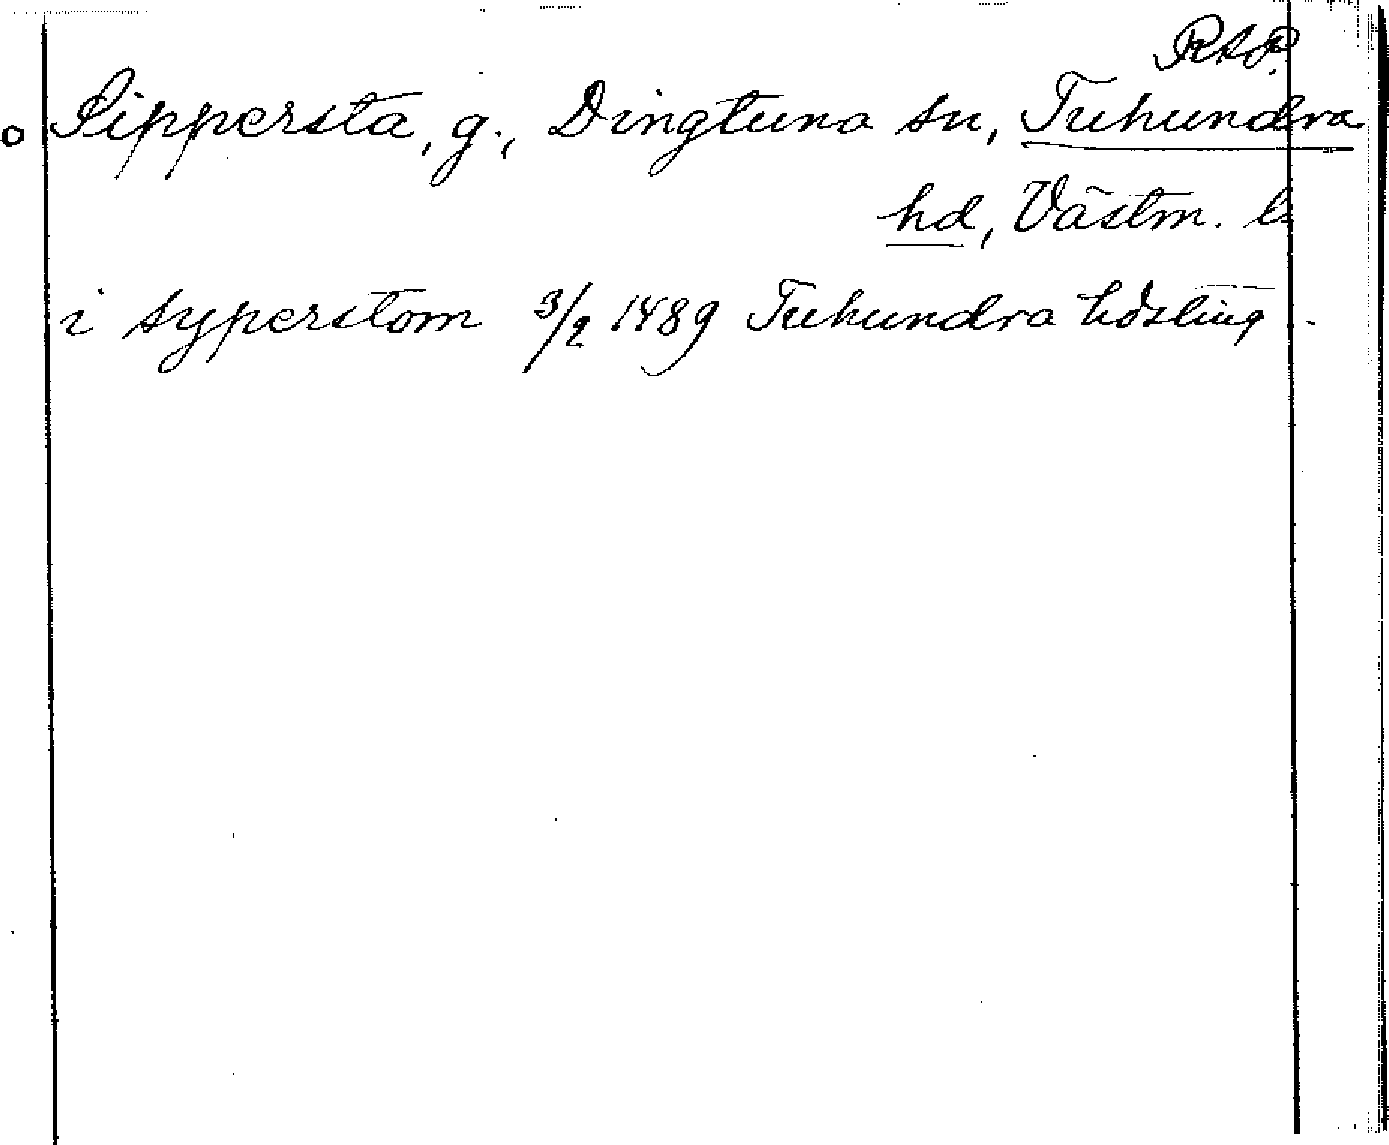 RAP.
o Sippersta, g., Dingtuna sn, Tuhundra
hd, Västm. l.
i syperstom 3/2 1489 Tuhundra hdsting.